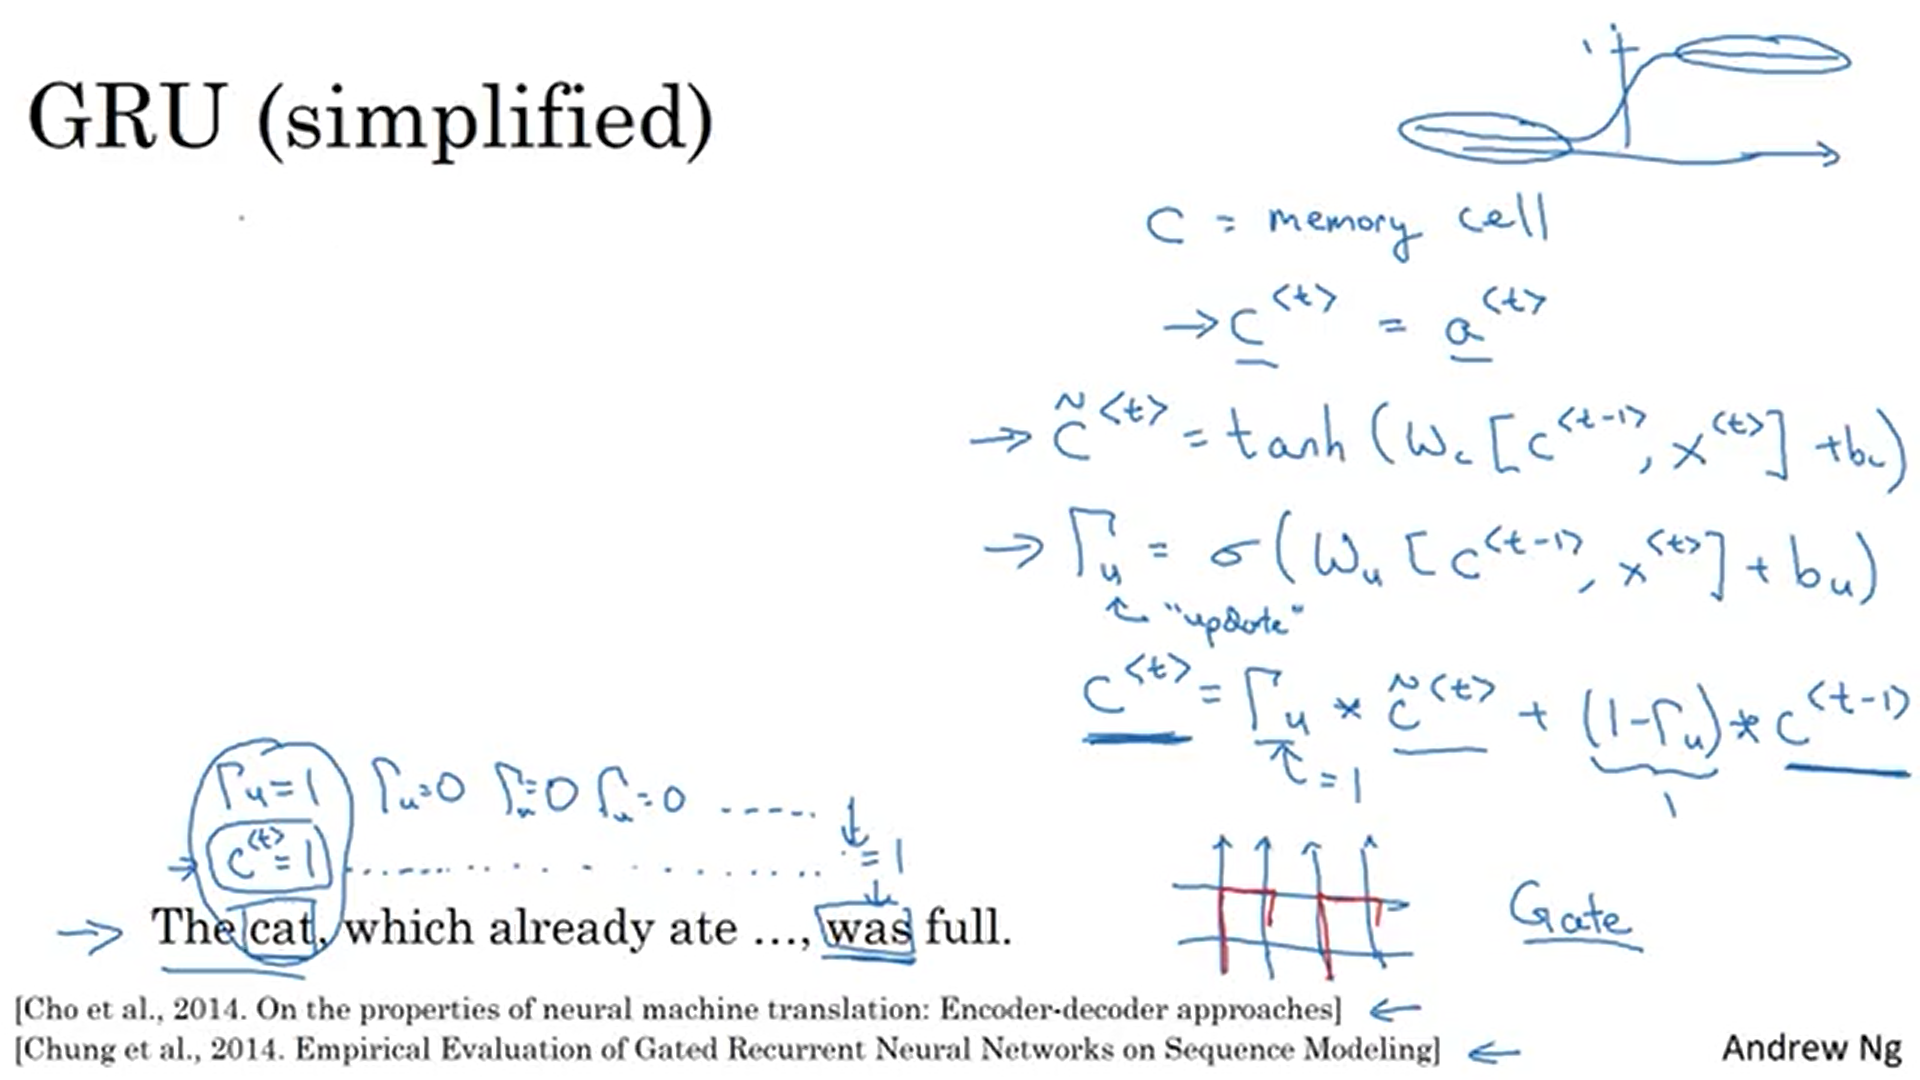 GRU (simplified)
1
C = memory cell
→ C^{<t>} = a^{<t>}
→ C̃^{<t>} = tanh (W_c [C^{<t-1>}, x^{<t>}] + b_c)
→ Γ_u = σ (W_u [C^{<t-1>}, x^{<t>}] + b_u)
↑ "update"
C^{<t>} = Γ_u * C̃^{<t>} + (1-Γ_u) * C^{<t-1>}
↑ = 1
1
Γ_u = 1 Γ_u = 0 Γ_u = 0 Γ_u = 0 ..... ↓
→ C^{<t>} = 1 .................. = 1
→ The cat, which already ate ..., was full.
Gate
[Cho et al., 2014. On the properties of neural machine translation: Encoder-decoder approaches] ←
[Chung et al., 2014. Empirical Evaluation of Gated Recurrent Neural Networks on Sequence Modeling] ←
Andrew Ng